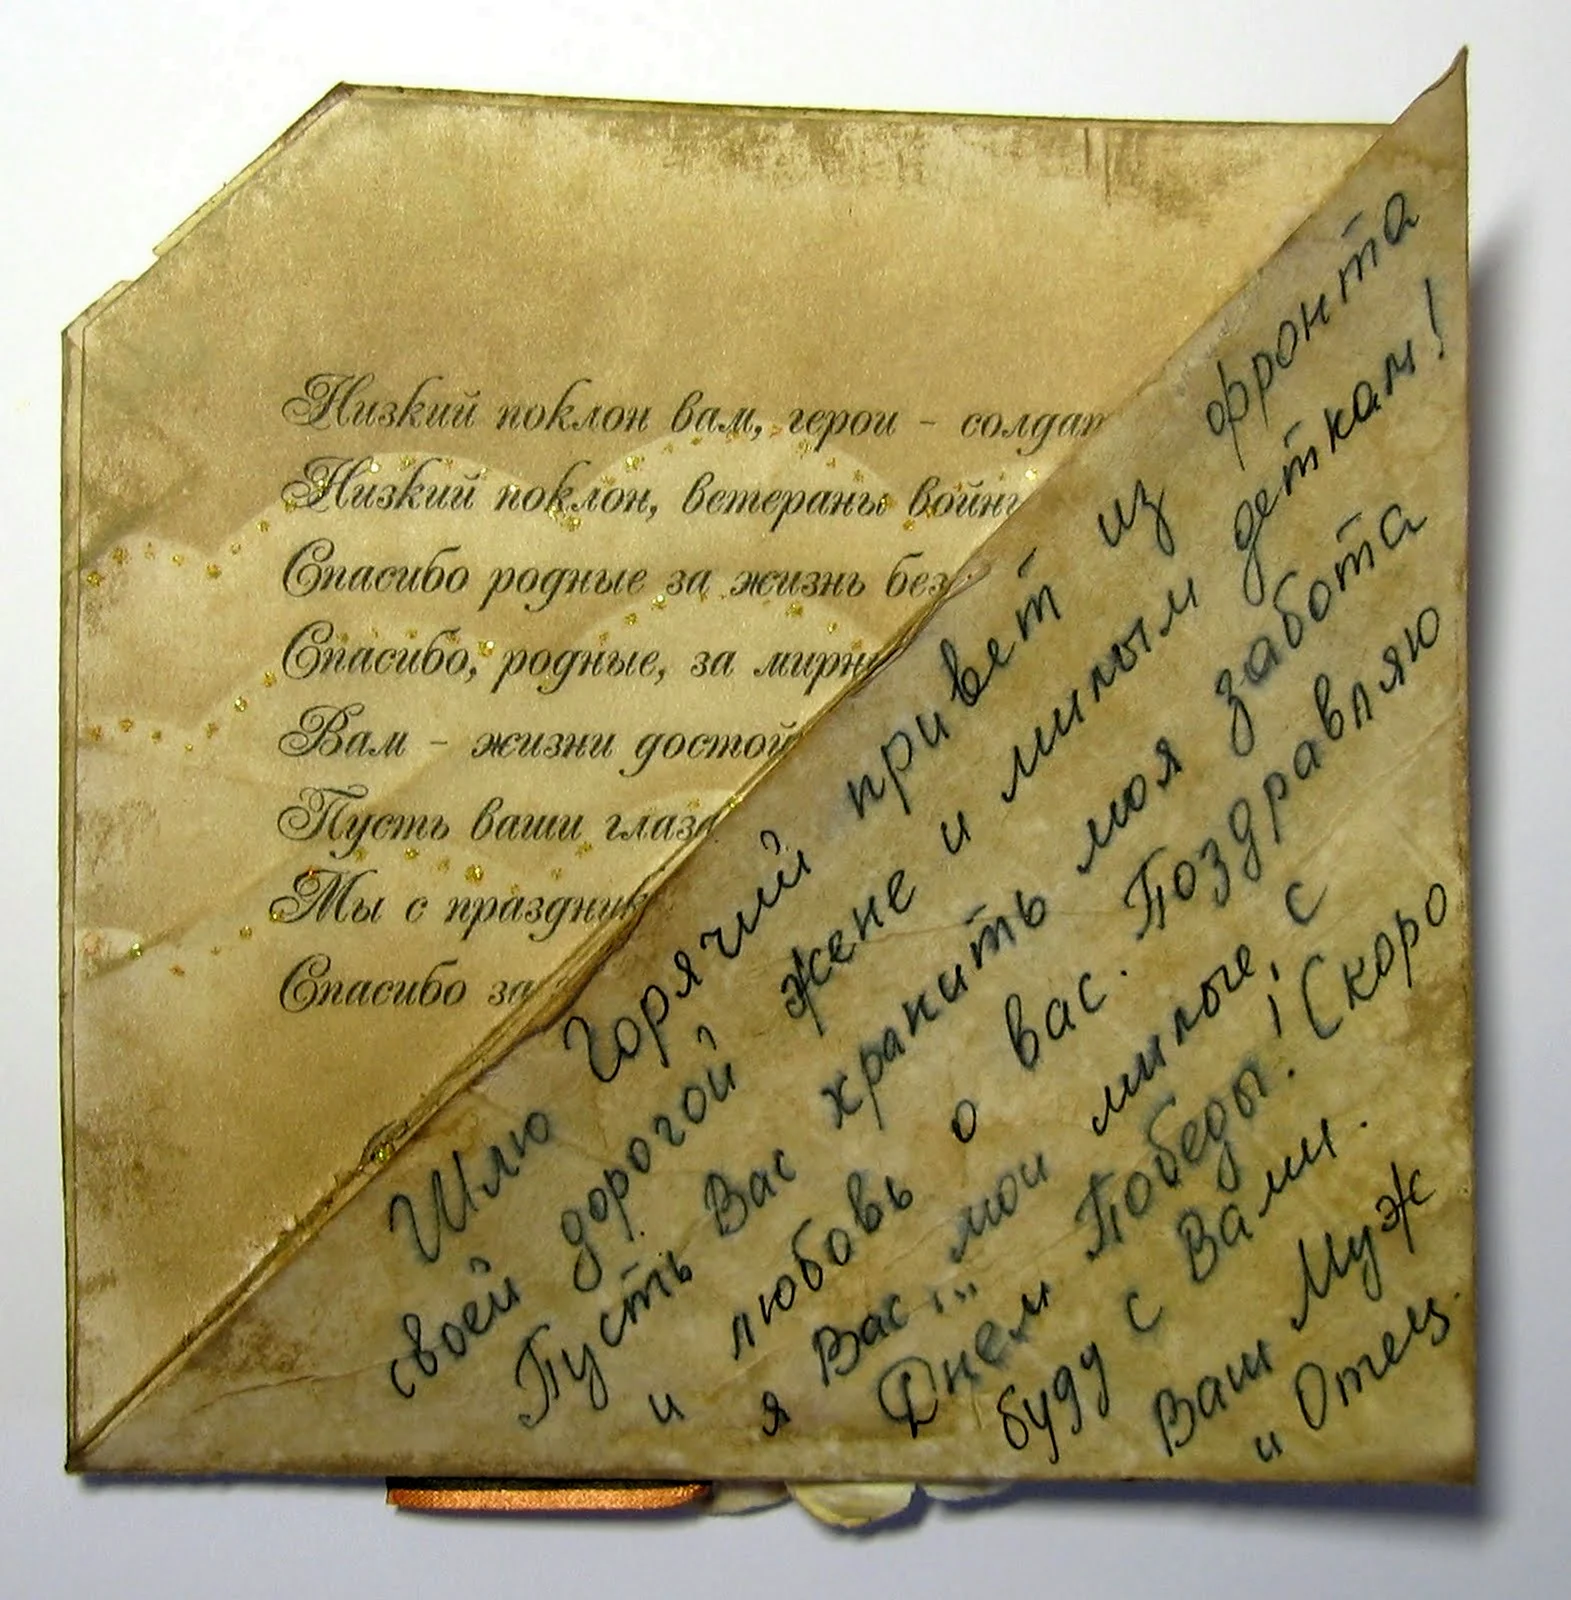 Низкий поклон вам, герои - солдат
Низкий поклон, ветераны войны
Спасибо родные за жизнь без
Спасибо, родные, за мирн
Вам - жизни достой
Пусть ваши глаза
Мы с праздник
Спасибо за
Шлю Горячий привет из фронта
своей дорогой жене и милым деткам!
Пусть Вас хранить моя забота
и любовь о вас. Поздравляю
я Вас... мои милые, с
Днем Победы!! Скоро
буду с Вами.
Ваш Муж
и Отец.